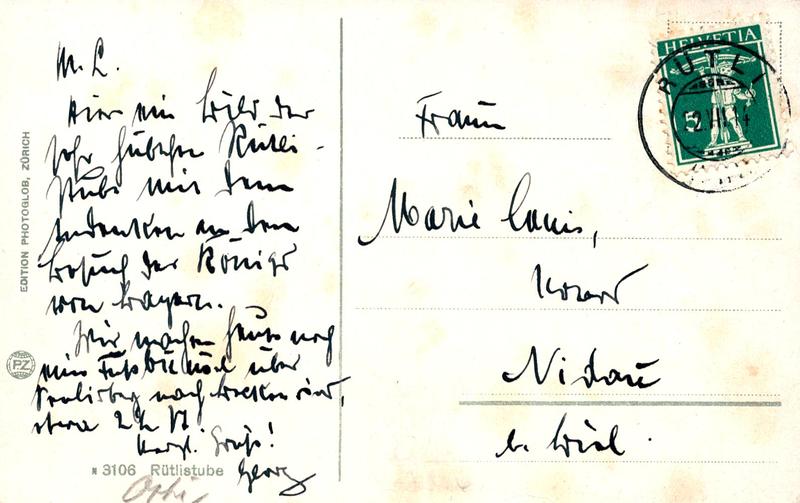 M. L.
Hier ein Bild der
sehr hübschen Rütli-
stube mit dem
Andenken an den
Besuch des Königs
von Bayern.
Wir machen heute noch
eine Fusstour über
Seelisberg nach
etwa 2 ½ St.
Herzl. Gruss!
Georg
EDITION PHOTOGLOB, ZÜRICH
PZ
N 3106 Rütlistube
HELVETIA
5
RÜTLI
2.VII.14
Frau
Marie
Nidau
b. Biel.